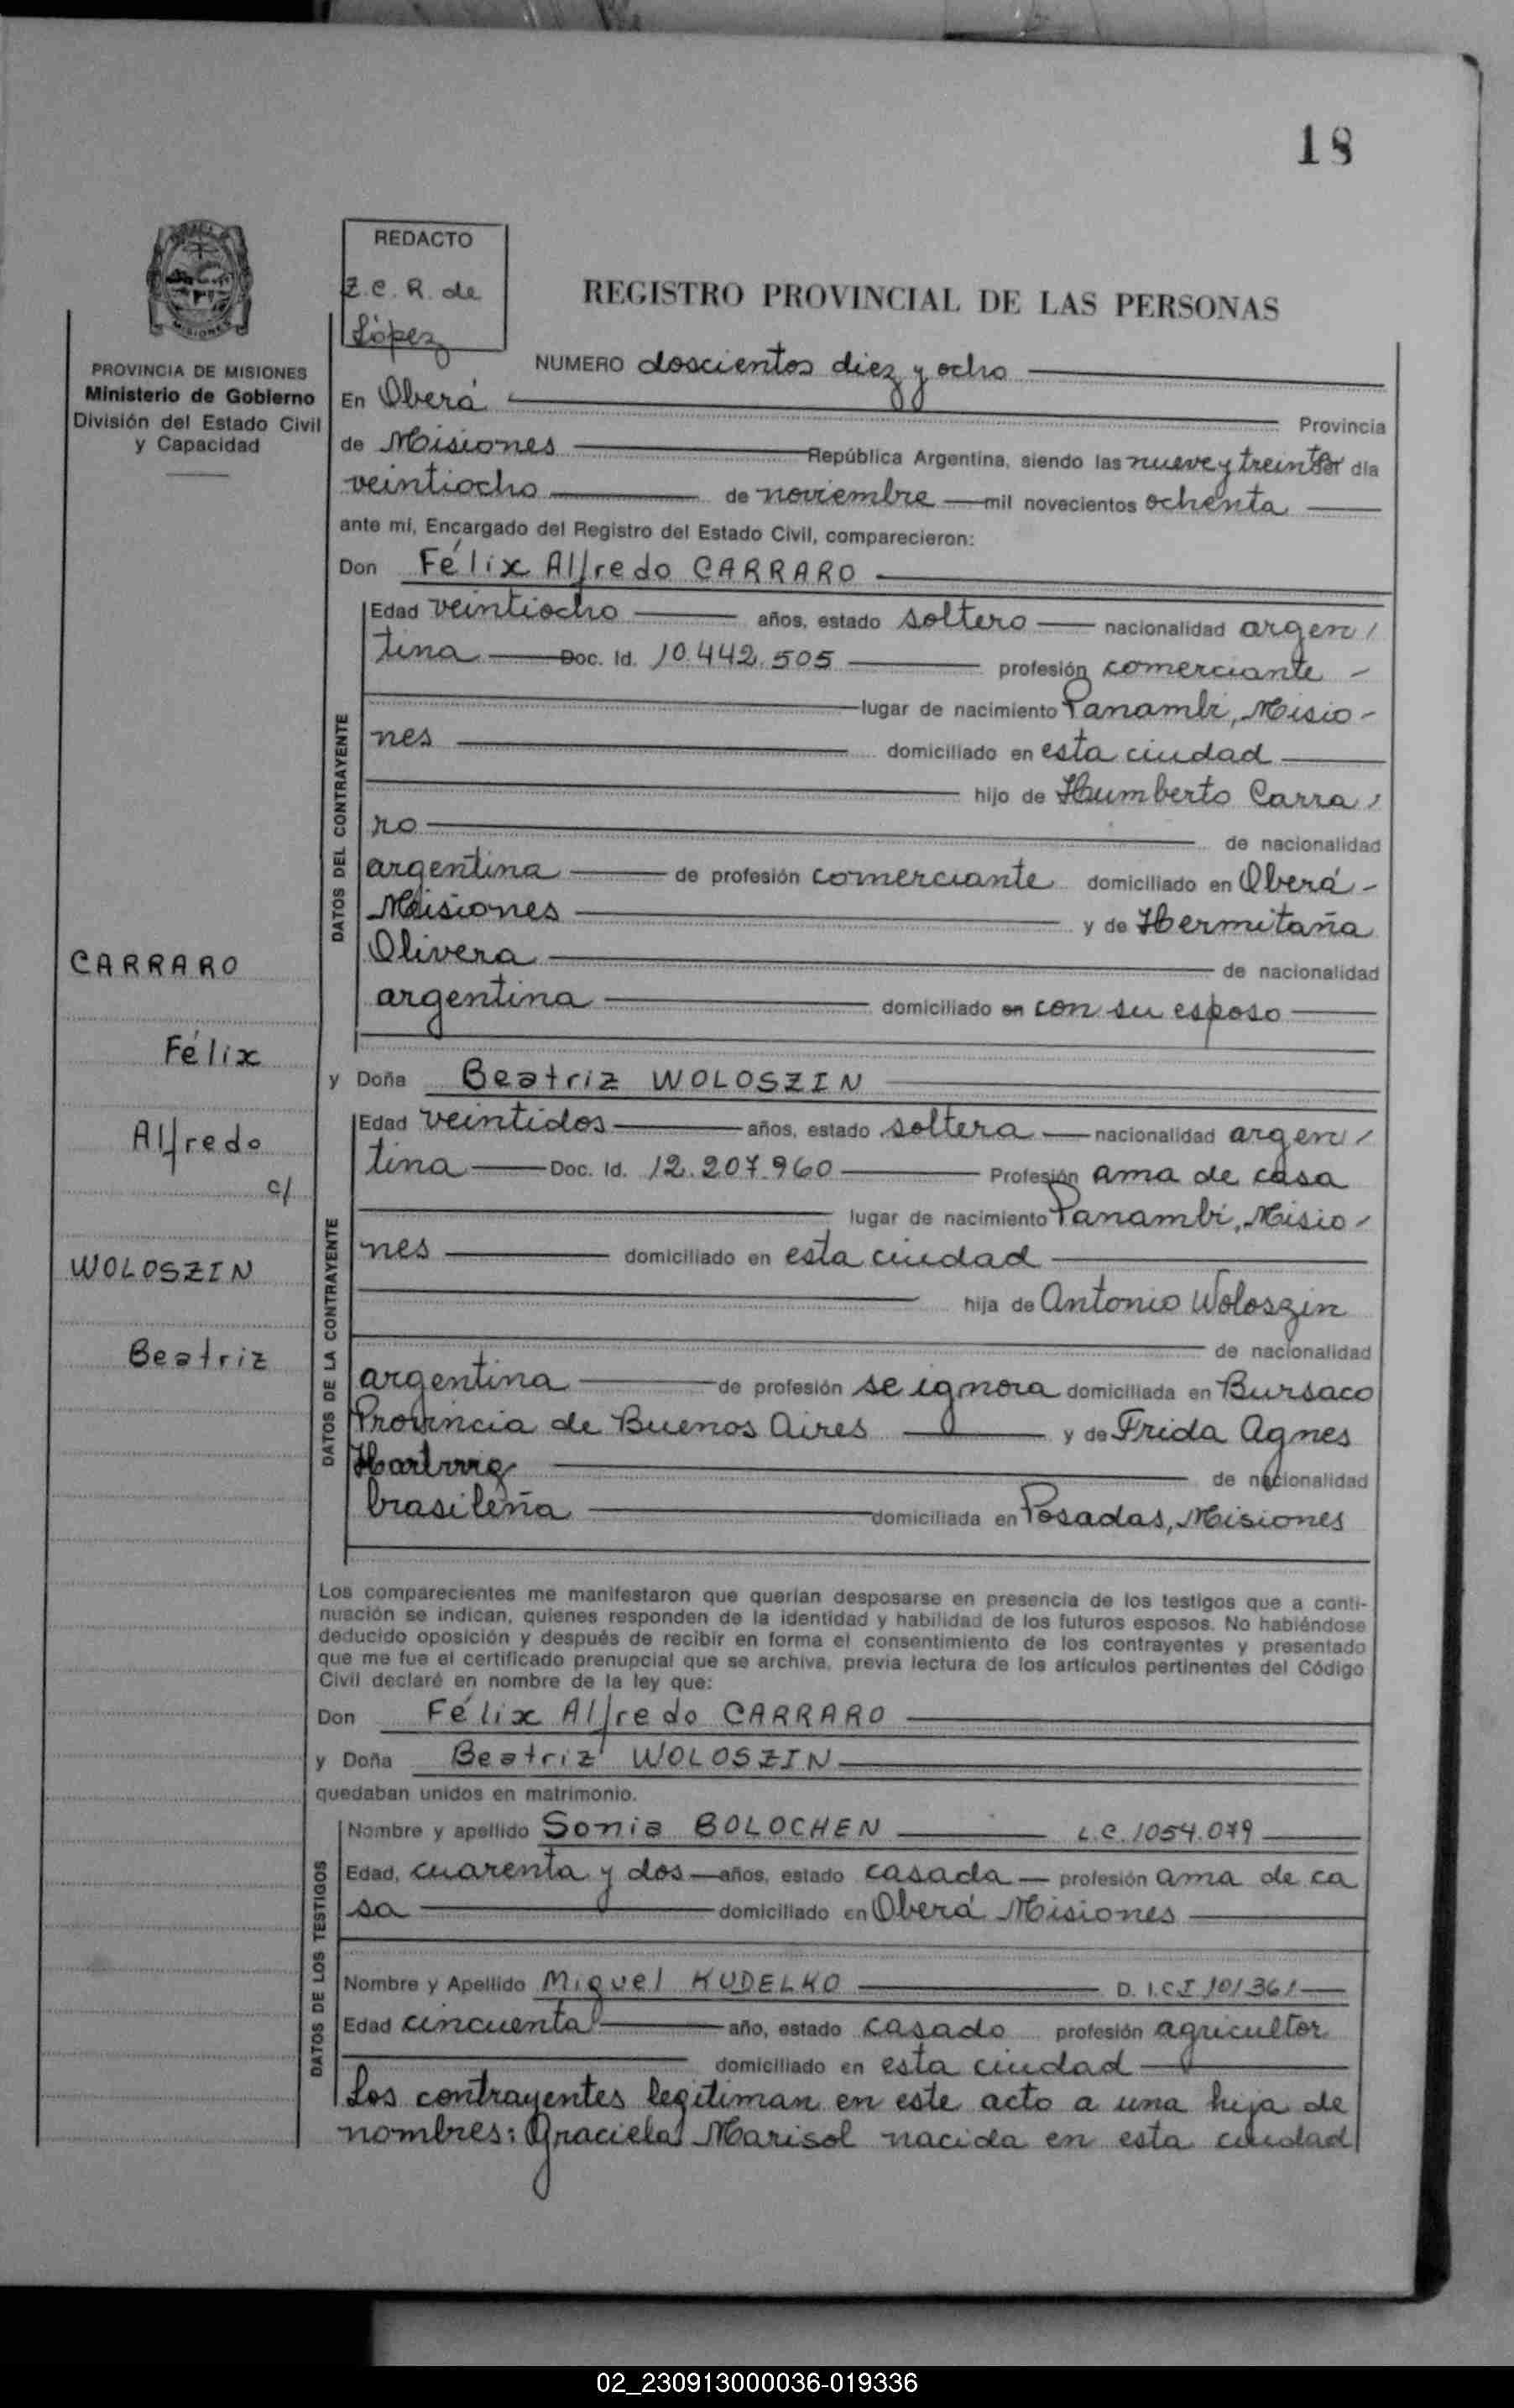 18
REDACTO
Z. C. R. de
López
REGISTRO PROVINCIAL DE LAS PERSONAS
PROVINCIA DE MISIONES
Ministerio de Gobierno
División del Estado Civil
y Capacidad
NUMERO doscientos diez y ocho
En Oberá Provincia
de Misiones República Argentina, siendo las nueve y treinta del dia
veintiocho de noviembre mil novecientos ochenta
ante mí, Encargado del Registro del Estado Civil, comparecieron:
Don Félix Alfredo CARRARO
DATOS DEL CONTRAYENTE
Edad veintiocho años, estado soltero nacionalidad argen/
tina Doc. Id. 10.442.505 profesión comerciante -
lugar de nacimiento Panambí, Misio-
nes domiciliado en esta ciudad
hijo de Humberto Carra/
ro de nacionalidad
argentina de profesión comerciante domiciliado en Oberá-
Misiones y de Hermitaña
Olivera de nacionalidad
argentina domiciliado en con su esposo
CARRARO
Félix
Alfredo
c/
WOLOSZIN
Beatriz
y Doña Beatriz WOLOSZIN
DATOS DE LA CONTRAYENTE
Edad veintidos años, estado soltera nacionalidad argen/
tina Doc. Id. 12.207.960 Profesión ama de casa
lugar de nacimiento Panambí, Misio/
nes domiciliado en esta ciudad
hija de Antonio Woloszin
de nacionalidad
argentina de profesión se ignora domiciliada en Bursaco
Provincia de Buenos Aires y de Frida Agnes
de nacionalidad
brasileña domiciliada en Posadas, Misiones
Los comparecientes me manifestaron que querían desposarse en presencia de los testigos que a conti-
nuación se indican, quienes responden de la identidad y habilidad de los futuros esposos. No habiéndose
deducido oposición y después de recibir en forma el consentimiento de los contrayentes y presentado
que me fue el certificado prenupcial que se archiva, previa lectura de los artículos pertinentes del Código
Civil declaré en nombre de la ley que:
Don Félix Alfredo CARRARO
y Doña Beatriz WOLOSZIN
quedaban unidos en matrimonio.
DATOS DE LOS TESTIGOS
Nombre y apellido Sonia BOLOCHEN L.C. 1054.079
Edad, cuarenta y dos años, estado casada profesión ama de ca
sa domiciliado en Oberá Misiones
Nombre y Apellido Miguel KUDELKO D.I.C.I 101361
Edad cincuenta año, estado casado profesión agricultor
domiciliado en esta ciudad
Los contrayentes legitiman en este acto a una hija de
nombres: Graciela Marisol nacida en esta ciudad
02_230913000036-019336